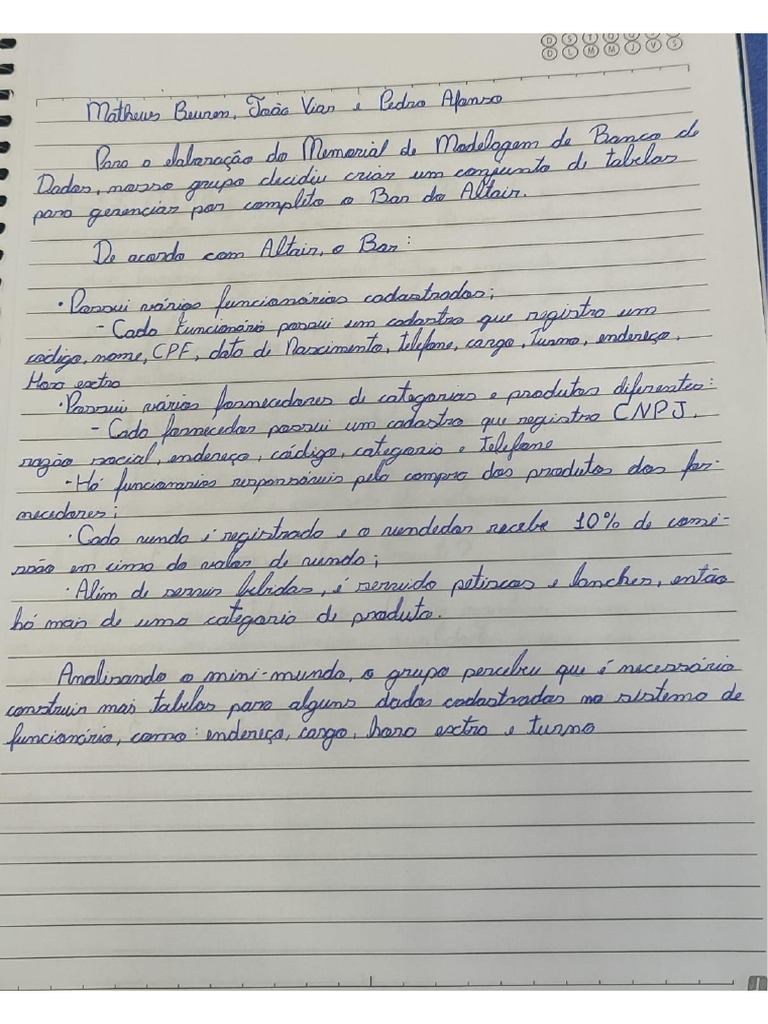 D S T Q Q S S
D L M M J V S
Matheus Beuren, João Vian e Pedro Afonso
Para a elaboração do Memorial de Modelagem de Banco de
Dados, nosso grupo decidiu criar um conjunto de tabelas
para gerenciar por completo o Bar do Altair.
De acordo com Altair, o Bar:
· Possui vários funcionários cadastrados;
- Cada Funcionário possui um cadastro que registra um
código, nome, CPF, data de Nascimento, telefone, cargo, Turno, endereço,
Hora extra
· Possui vários fornecedores de categorias e produtos diferentes:
- Cada fornecedor possui um cadastro que registra CNPJ,
razão social, endereço, código, categoria e telefone
- Há funcionarios responsáveis pela compra dos produtos dos for-
necedores;
· Cada venda é registrada e o vendedor recebe 10% de comi-
ssão em cima do valor de venda;
· Além de servir bebidas, é servido petiscos e lanches, então
há mais de uma categoria de produto.
Analisando o mini-mundo, o grupo percebeu que é necessário
construir mais tabelas para alguns dados cadastrados no sistema de
funcionário, como: endereço, cargo, hora extra e turno